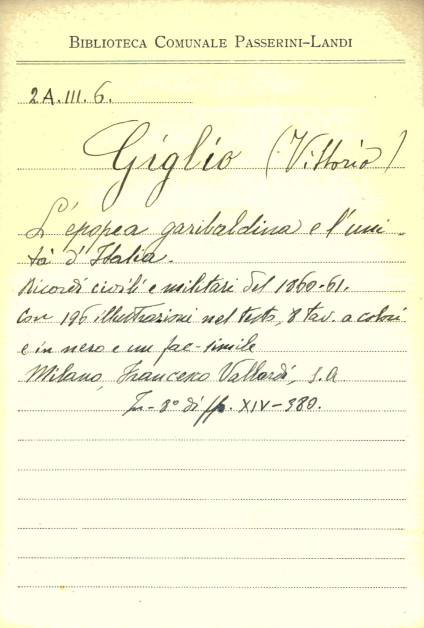 BIBLIOTECA COMUNALE PASSERINI-LANDI
2A.III.6.
Giglio (Vittorio)
L'epopea garibaldina e l'uni-
tà d'Italia.
Ricordi civili e militari del 1860-61.
Con 196 illustrazioni nel testo, 8 tav. a colori
e in nero e un fac-simile
Milano, Francesco Vallardi, s.a
In-8° di pp. XIV-380.